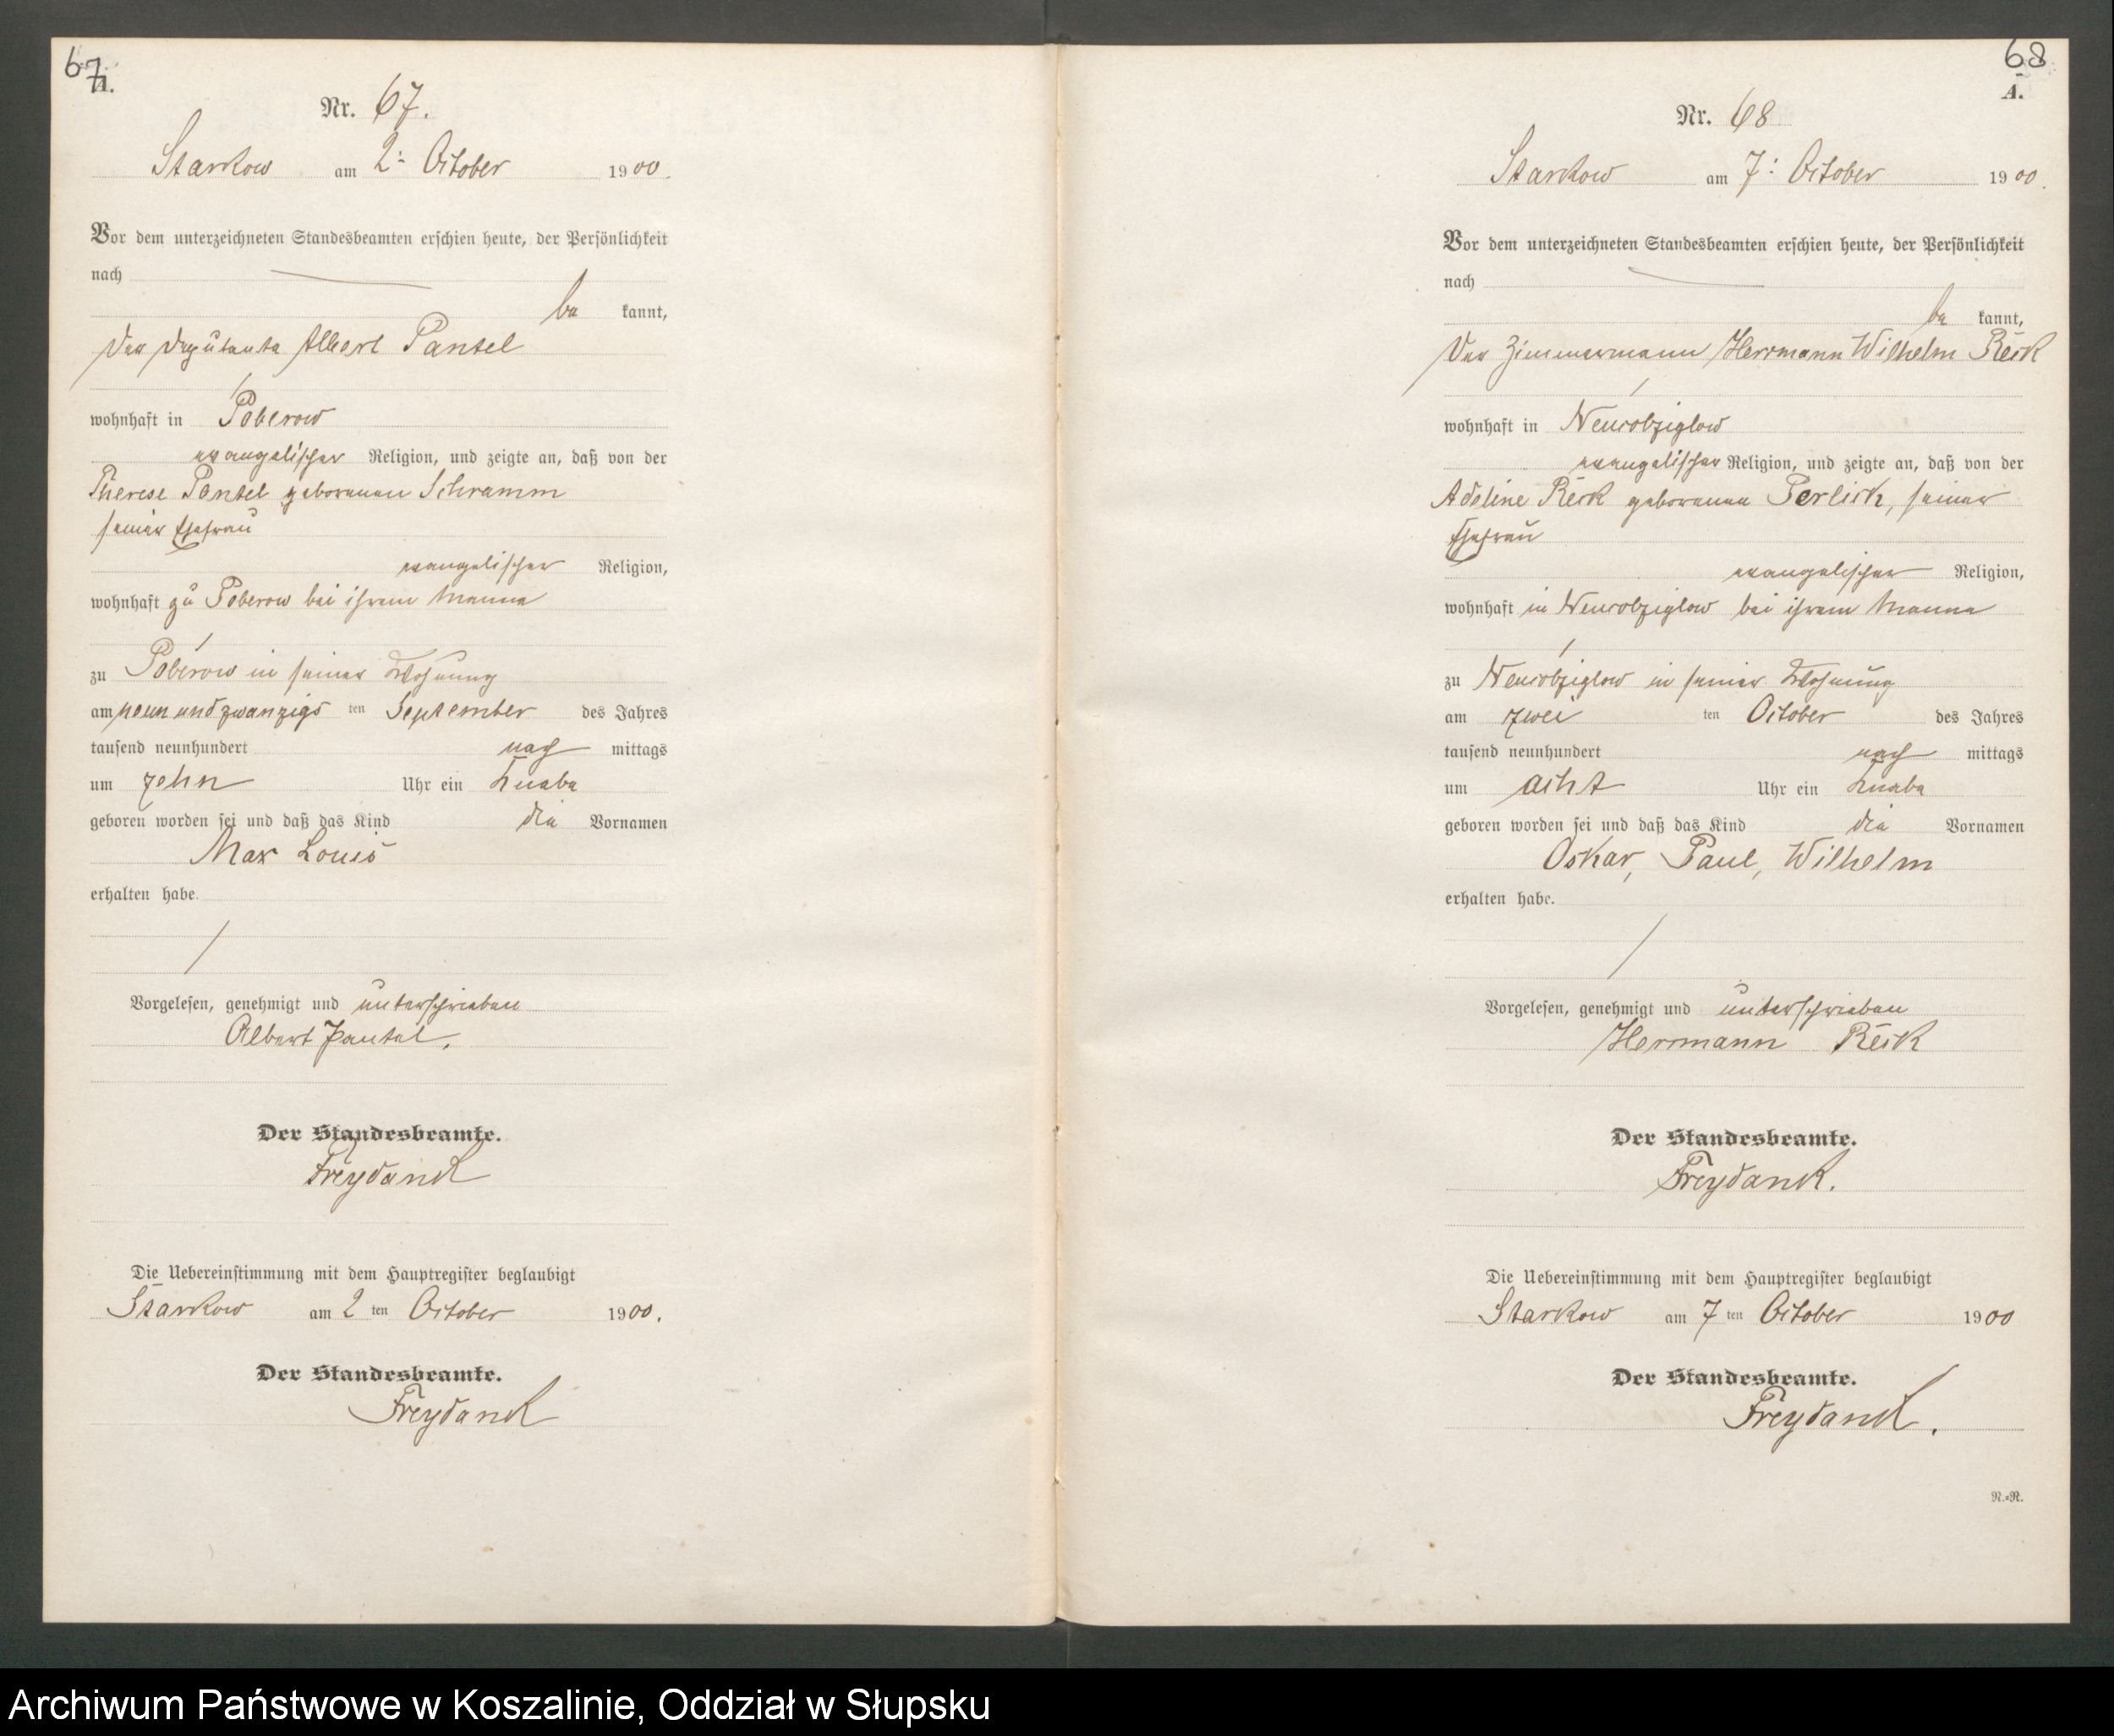 67
A.
Nr. 67.
Starkow am 2: October 1900.
Vor dem unterzeichneten Standesbeamten erschien heute, der Persönlichkeit
nach
be kannt,
der Deputante Albert Pantel
wohnhaft in Poberow
evangelischer Religion, und zeigte an, daß von der
Therese Pantel geborenen Schramm
seiner Ehefrau
evangelischer Religion,
wohnhaft zu Poberow bei ihrem Manne
zu Poberow in seiner Wohnung
am neun und zwanzigs ten September des Jahres
tausend neunhundert nach mittags
um zehn Uhr ein Knabe
geboren worden sei und daß das Kind die Vornamen
Max Louis
erhalten habe.
Vorgelesen, genehmigt und unterschrieben
Albert Pantel.
Der Standesbeamte.
Freydanck
Die Uebereinstimmung mit dem Hauptregister beglaubigt
Starkow am 2 ten October 1900.
Der Standesbeamte.
Freydanck
68
A.
Nr. 68
Starkow am 7: October 1900.
Vor dem unterzeichneten Standesbeamten erschien heute, der Persönlichkeit
nach
be kannt,
der Zimmermann Herrmann Wilhelm Reck
wohnhaft in Neucobziglow
evangelischer Religion, und zeigte an, daß von der
Adeline Reck geborenen Perlick, seiner
Ehefrau
evangelischer Religion,
wohnhaft in Neucobziglow bei ihrem Manne
zu Neucobziglow in seiner Wohnung
am zwei ten October des Jahres
tausend neunhundert nach mittags
um acht Uhr ein Knabe
geboren worden sei und daß das Kind die Vornamen
Oskar, Paul, Wilhelm
erhalten habe.
Vorgelesen, genehmigt und unterschrieben
Herrmann Reck
Der Standesbeamte.
Freydanck.
Die Uebereinstimmung mit dem Hauptregister beglaubigt
Starkow am 7 ten October 1900
Der Standesbeamte.
Freydanck.
N.=R.
Archiwum Państwowe w Koszalinie, Oddział w Słupsku